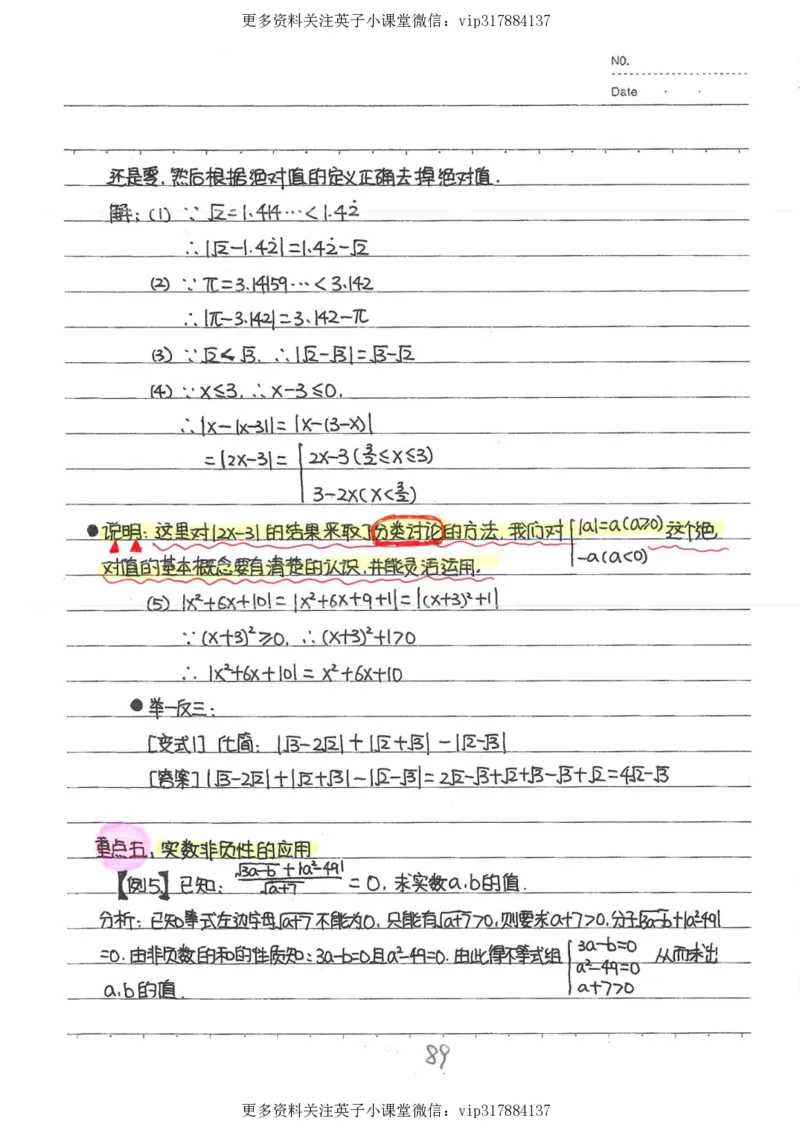 更多资料关注英子小课堂微信：vip317884137
NO.
Date
还是零,然后根据绝对值的定义正确去掉绝对值.
解:(1) ∵ √2=1.414…<1.42̇
∴|√2-1.42̇|=1.42̇-√2
(2) ∵ π=3.14159…<3.142
∴|π-3.142|=3.142-π
(3) ∵√2<√3, ∴|√2-√3|=√3-√2
(4) ∵x≤3, ∴x-3≤0,
∴|x-|x-3||=|x-(3-x)|
=|2x-3|={2x-3(3/2≤x≤3)
3-2x(x<3/2)
●说明:这里对|2x-3|的结果采取了分类讨论的方法,我们对{|a|=a(a≥0)这个绝
-a(a<0)
对值的基本概念要有清楚的认识,并能灵活运用.
(5) |x²+6x+10|=|x²+6x+9+1|=|(x+3)²+1|
∵(x+3)²≥0, ∴(x+3)²+1>0
∴ |x²+6x+10|=x²+6x+10
●举一反三:
[变式1] 化简: |√3-2√2|+|√2+√3|-|√2-√3|
[答案]|√3-2√2|+|√2+√3|-|√2-√3|=2√2-√3+√2+√3-√3+√2=4√2-√3
重点五,实数非负性的应用
【例5】已知: (√3a-b+|a²-49|)/√a+7=0,求实数a,b的值.
分析:已知等式左边字母√a+7不能为0,只能有√a+7>0,则要求a+7>0,分子√3a-b+|a²-49|
=0.由非负数的和的性质知:3a-b=0且a²-49=0.由此得不等式组{3a-b=0 从而求出
a²-49=0
a,b的值. a+7>0
89
更多资料关注英子小课堂微信：vip317884137